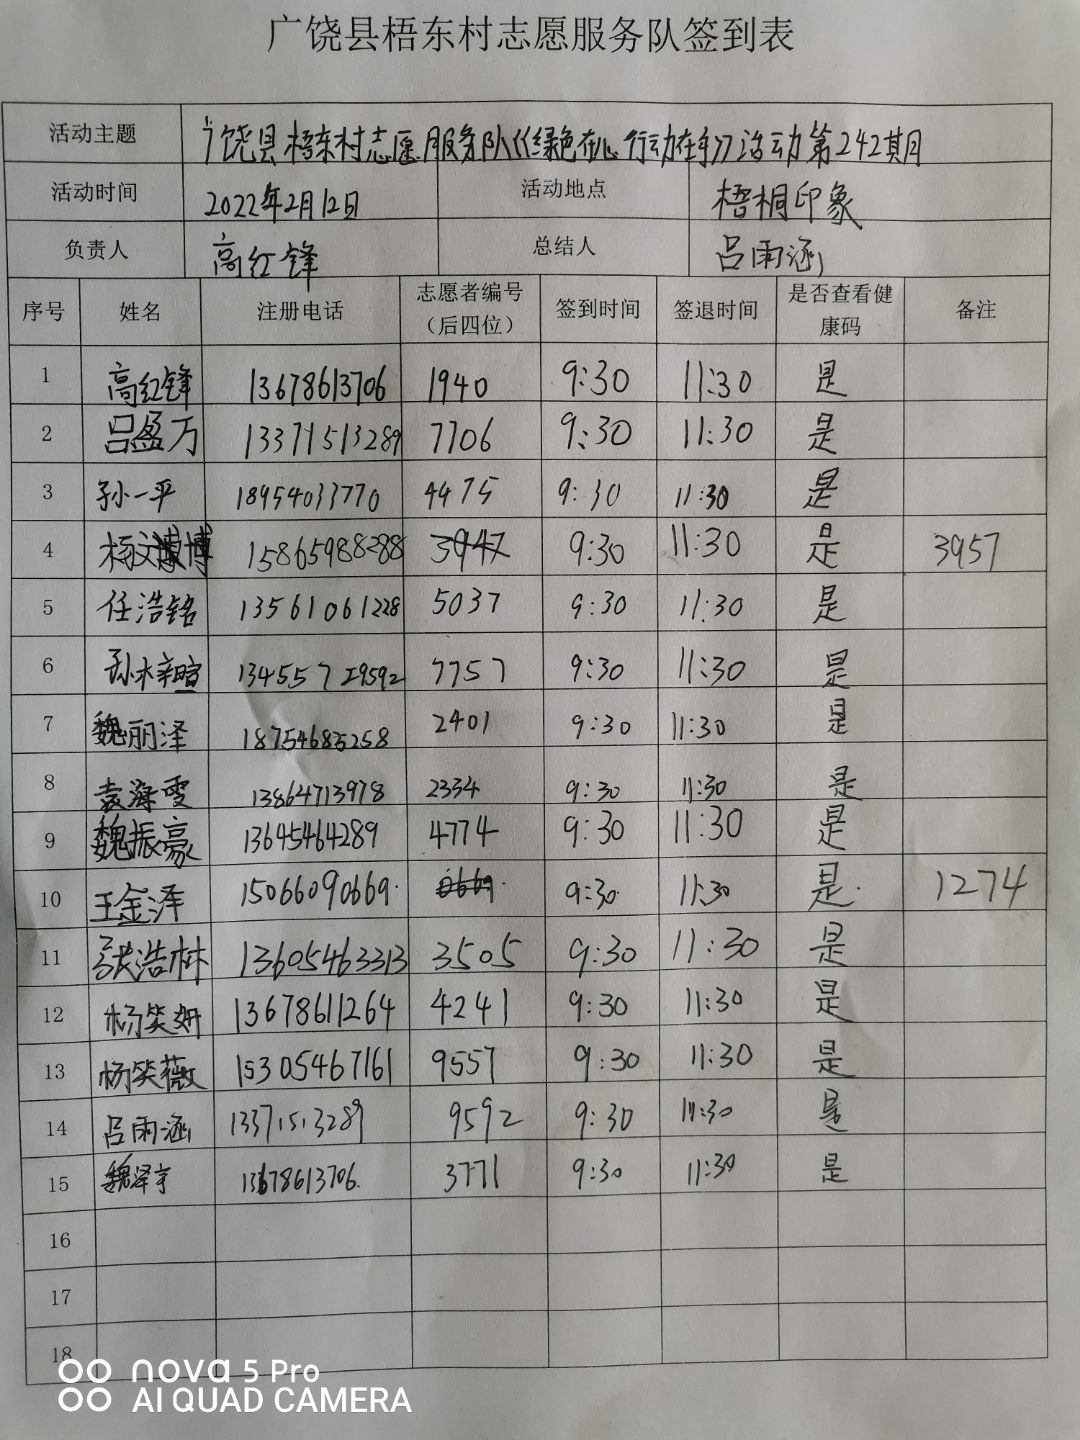 广饶县梧东村志愿服务队签到表
活动主题 广饶县梧东村志愿服务队《绿色在心 行动在手》活动第242期
活动时间 2022年2月12日 活动地点 梧桐印象
负责人 高红锋 总结人 吕雨涵
序号 姓名 注册电话 志愿者编号（后四位） 签到时间 签退时间 是否查看健康码 备注
1 高红锋 13678613706 1940 9:30 11:30 是
2 吕盈万 13371513289 7706 9:30 11:30 是
3 孙一平 18954033770 4475 9:30 11:30 是
4 杨文博 15865988288 3947 9:30 11:30 是 3957
5 任浩铭 13561061228 5037 9:30 11:30 是
6 孙梓暄 7757 9:30 11:30 是
7 魏丽泽 18754683258 2401 9:30 11:30 是
8 袁海雯 13864713978 2334 9:30 11:30 是
9 魏振豪 13645464289 4774 9:30 11:30 是
10 王金泽 15066090669 0669 9:30 11:30 是 1274
11 张浩林 13605463313 3505 9:30 11:30 是
12 杨笑妍 13678611264 4241 9:30 11:30 是
13 杨笑薇 15305467161 9557 9:30 11:30 是
14 吕雨涵 13371513289 9592 9:30 11:30 是
15 魏泽宇 13678613706 3771 9:30 11:30 是
16
17
18
nova 5 Pro
AI QUAD CAMERA